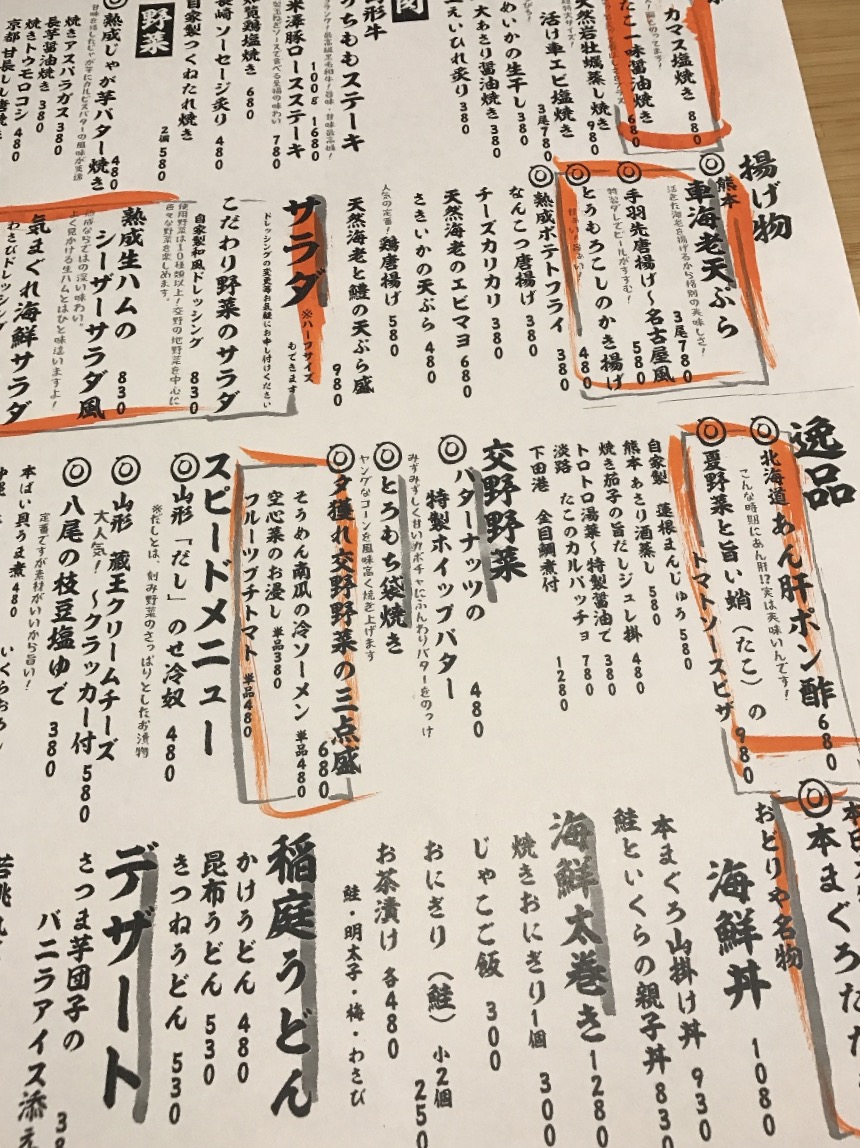 カマス塩焼き 880
たこ一味醤油焼き 680
天然岩牡蠣蒸し焼き 980
活け車エビ塩焼き 3尾780
大あさり醤油焼き 380
えいひれ炙り 380
うちももステーキ
100g 1680
米澤豚ロースステーキ 780
塩焼き 680
ソーセージ炙り 480
自家製つくねたれ焼き
2個 580
野菜
◎熟成じゃが芋バター焼き 480
焼きアスパラガス 380
長芋醤油焼き 380
焼きトウモロコシ 480
京都 甘長しし唐
揚げ物
◎熊本 車海老天ぷら
3尾780
活きた海老を揚げるから格別の美味しさ!
◎手羽先唐揚げ〜名古屋風 580
特製ダレでビールがすすむ!
◎とうもろこしのかき揚げ 480
◎熟成ポテトフライ 380
なんこつ唐揚げ 380
チーズカリカリ 380
天然海老のエビマヨ 680
さきいかの天ぷら 480
人気の定番! 鶏唐揚げ 580
天然海老と鱧の天ぷら盛 980
サラダ ※ハーフサイズもできます
ドレッシングの変更等お気軽にお申し付けください
こだわり野菜のサラダ
自家製和風ドレッシング 830
使用野菜は10種類以上!交野の地野菜を中心に
色々な野菜を楽しめます。
熟成生ハムの
シーザーサラダ風 830
熟成ならではの深い味わい。
よく見かける生ハムとはひと味違いますよ!
気まぐれ海鮮サラダ
わさびドレッシング
逸品
◎北海道 あん肝ポン酢 680
こんな時期にあん肝!?実は美味いんです!
◎夏野菜と旨い蛸(たこ)の
トマトソースピザ 980
自家製 蓮根まんじゅう 580
熊本 あさり酒蒸し 580
焼き茄子の旨だしジュレ掛 480
トロトロ湯葉〜特製醤油で 380
淡路 たこのカルパッチョ 780
下田港 金目鯛煮付 1280
交野野菜
◎バターナッツの
特製ホイップバター 480
みずみずしく甘いカボチャにふんわりバターをのっけ
◎とうもろこし袋焼き
ヤングなコーンを風味高く焼き上げます
◎夕獲れ交野野菜の三点盛 680
そうめん南瓜の冷ソーメン 単品480
空心菜のお浸し 単品380
フルーツプチトマト 単品480
スピードメニュー
◎山形「だし」のせ冷奴 480
※だしとは、刻み野菜のさっぱりとしたお漬物
◎山形 蔵王クリームチーズ
大人気! 〜クラッカー付 580
◎八尾の枝豆塩ゆで 380
定番ですが素材がいいから旨い!
本ばい貝うま煮 480
◎本まぐろたた
おどりや名物
海鮮丼 1080
本まぐろ山掛け丼 930
鮭といくらの親子丼 830
海鮮太巻き 1280
焼きおにぎり1個 300
じゃこご飯 300
おにぎり(鮭) 小2個 250
お茶漬け 各480
鮭・明太子・梅・わさび
稲庭うどん
かけうどん 480
昆布うどん 530
きつねうどん 530
デザート
さつま芋団子の
バニラアイス添え